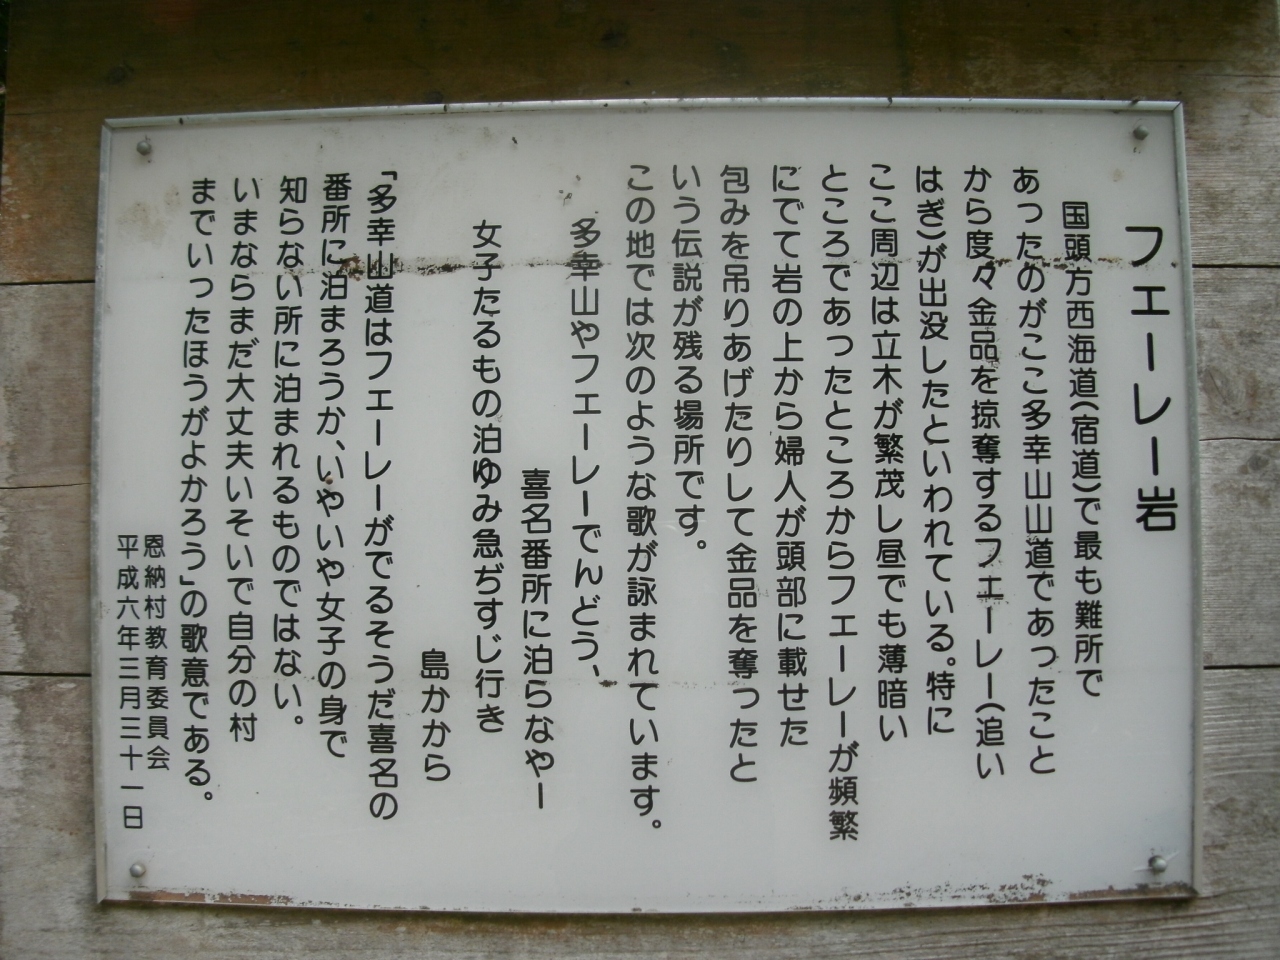 フエーレー岩
国頭方西海道(宿道)で最も難所で
あったのがここ多幸山山道であったこと
から度々金品を掠奪するフエーレー(追い
はぎ)が出没したといわれている。特に
ここ周辺は立木が繁茂し昼でも薄暗い
ところであったところからフエーレーが頻繁
にでて岩の上から婦人が頭部に載せた
包みを吊りあげたりして金品を奪ったと
いう伝説が残る場所です。
この地では次のような歌が詠まれています。
多幸山やフエーレーでんどう、
喜名番所に泊らなやー
女子たるもの泊ゆみ急ぢすじ行き
島かから
「多幸山道はフエーレーがでるそうだ喜名の
番所に泊まろうか、いやいや女子の身で
知らない所に泊まれるものではない。
いまならまだ大丈夫いそいで自分の村
までいったほうがよかろう」の歌意である。
恩納村教育委員会
平成六年三月三十一日